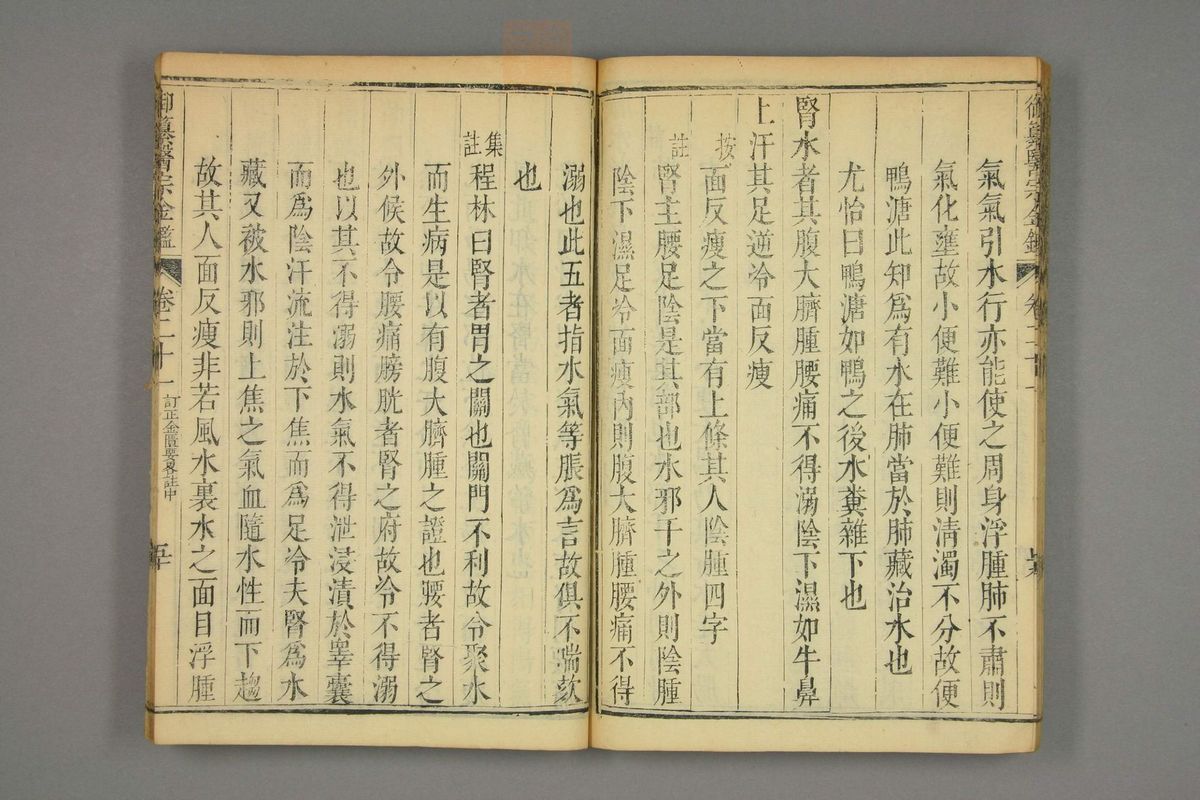 氣氣引水行亦能使之周身浮腫肺不肅則
氣化壅故小便難小便難則清濁不分故便
鴨溏此知爲有水在肺當於肺藏治水也
尤怡曰鴨溏如鴨之後水糞雜下也
腎水者其腹大臍腫腰痛不得溺陰下濕如牛鼻
上汗其足逆冷面反瘦
按面反瘦之下當有上條其人陰腫四字
註腎主腰足陰是其部也水邪干之外則陰腫
陰下濕足冷面瘦內則腹大臍腫腰痛不得
溺也此五者指水氣等脹爲言故俱不喘欬
也
集註程林曰腎者胃之關也關門不利故令聚水
而生病是以有腹大臍腫之證也腰者腎之
外候故令腰痛膀胱者腎之府故令不得溺
也以其不得溺則水氣不得泄浸漬於睾囊
而爲陰汗流注於下焦而爲足冷夫腎爲水
藏又被水邪則上焦之氣血隨水性而下趨
故其人面反瘦非若風水裏水之面目浮腫
御纂醫宗金鑑 卷二十一 訂正金匱要畧註中